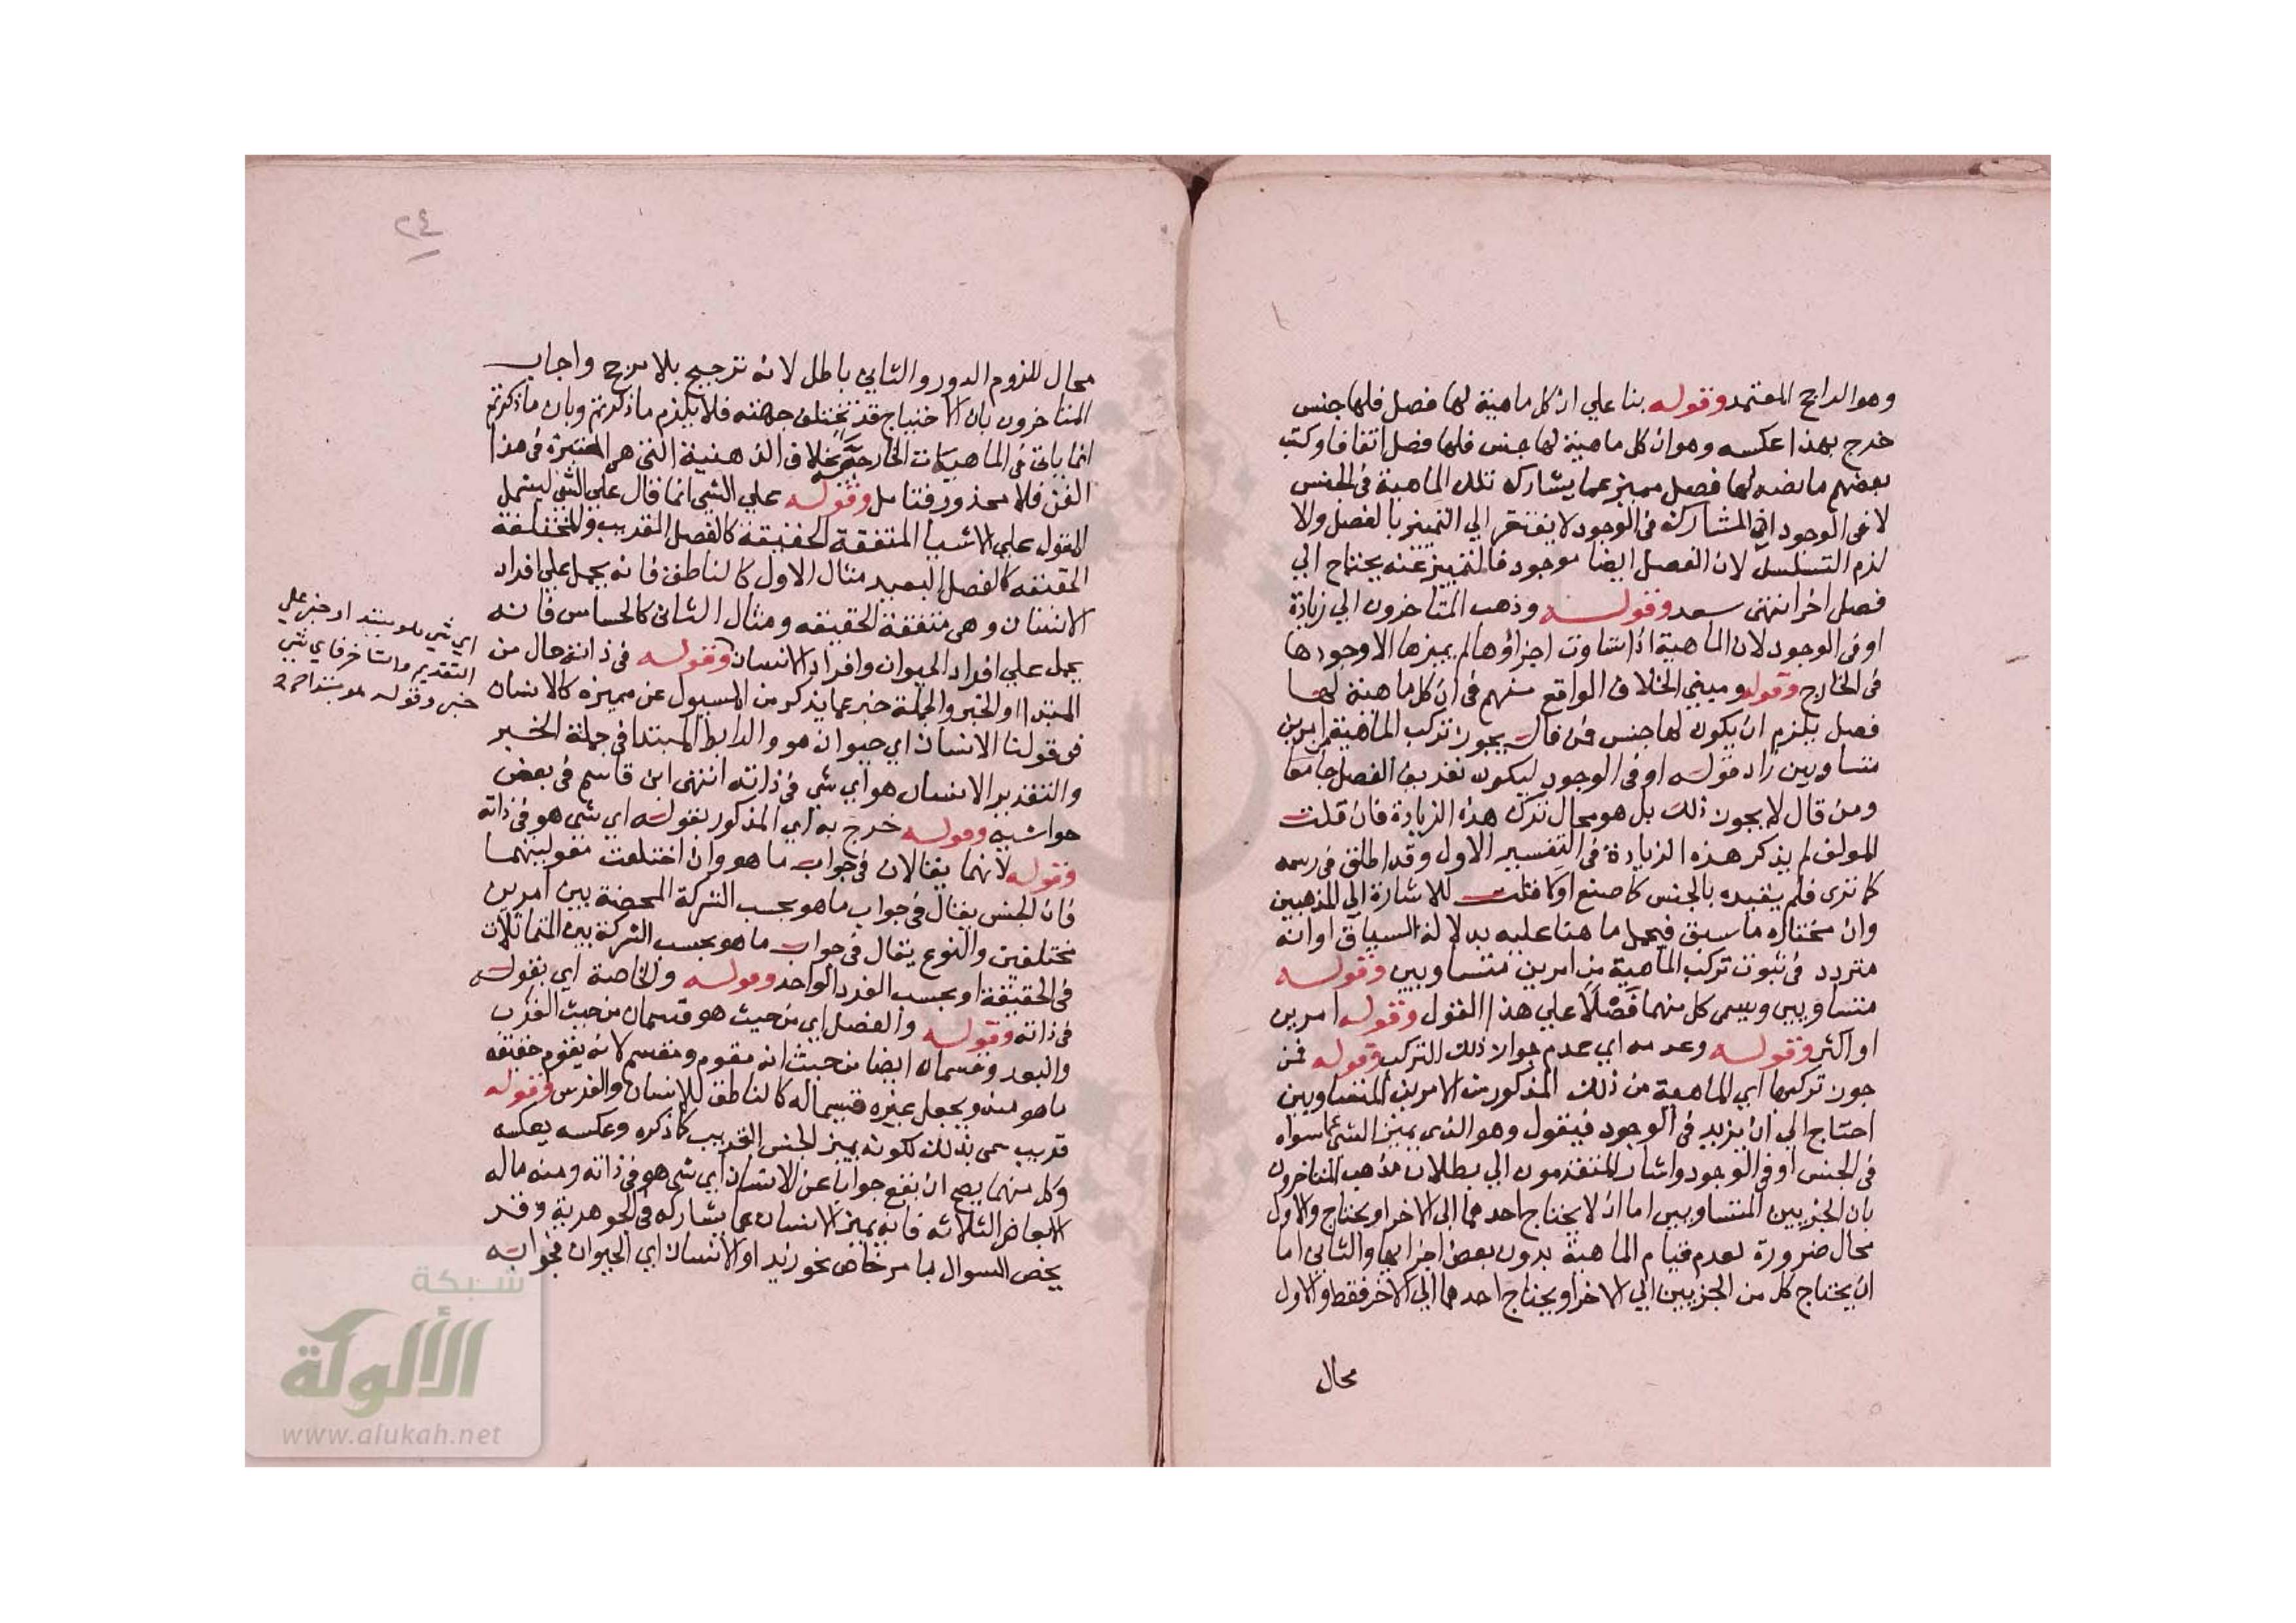 وهو الراجح المعتمد وقوله بنا علي ان كل ماهية لها فصل فلها جنس
خرج بهذا عكسه وهو ان كل ماهية لها جنس فلها فصل اتفاقا وكتب
بعضهم ما نصه لها فصل مميز عما يشاركه تلك الماهية في الجنس
لا في الوجود اذ المشاركة في الوجود لا يفتقر الي التمييز بالفصل والا
لزم التسلسل لان الفصل ايضا موجود فالتمييز عنه يحتاج الي
فصل اخر انتهى سعد وقوله وذهب المتاخرون الي زيادة
او في الوجود لان الماهية اذا تساوت اجزاؤها لم يميزها الا وجودها
في الخارج وقوله ومبني الخلاف الواقع منهم في ان كل ماهية لها
فصل يلزم ان يكون لها جنس فمن قال يجوز تركب الماهية من امرين
متساويين زاد قوله او في الوجود ليكون تعريف الفصل جامعا
ومن قال لا يجوز ذلك بل هو محال ترك هذه الزيادة فان قلت
المولف لم يذكر هذه الزيادة في التفسير الاول وقد اطلق في رسمه
كما تري فلم يقيده بالجنس كما صنع اولا قلت للاشارة الي المذهبين
وان مختاره ما سبق فيحمل ما هنا عليه بدلالة السياق او انه
متردد في ثبوت تركب الماهية من امرين متساويين وقوله
متساويين ويسمى كل منهما فصلا علي هذا القول وقوله امرين
او اكثر وقوله وعدمه اي عدم جواز ذلك التركب وقوله فمن
جوز تركبها اي الماهية من ذلك المذكور من الامرين المتساويين
احتاج الي ان يزيد في الوجود فيقول وهو الذي يميز الشي عما سواه
في الجنس او في الوجود واشار المتقدمون الي بطلان مذهب المتاخرون
بان الجزيين المتساويين اما ان لا يحتاج احدهما الى الاخر او يحتاج والاول
محال ضرورة لعدم قيام الماهية بدون بعض اجزايها والثاني اما
ان يحتاج كل من الجزيين الي الاخر او يحتاج احدهما الي الاخر فقط والاول
محال
٢٤
محال للزوم الدور والثاني باطل لانه ترجيح بلا مرجح واجاب
المتاخرون بان الاحتياج قد تختلف جهته فلا يلزم ما ذكرتم وبان ما ذكرتم
انما ياتي في الماهيات الخارجية بخلاف الذهنية التي هي المعتبرة في هذا
الفن فلا محذور فتامل وقوله علي الشي انما قال علي الشي ليشمل
المقول علي الاشيا المتفقة الحقيقة كالفصل القريب والمختلفة
الحقيقه كالفصل البعيد مثال الاول كالناطق فانه يحمل علي افراد
الانسان وهي متفقة الحقيقه ومثال الثاني كالحساس فانه
يحمل علي افراد الحيوان وافراد الانسان وقوله في ذاته حال من
المبتدا او الخبر والجملة خبر عما يذكر من المسيول عن مميزه كالانسان
في قولنا الانسان اي حيوان هو والرابط المبتدا في جملة الخبر
والتقدير الانسان هو اي شي في ذاته انتهى ابن قاسم في بعض
حواشيه وقوله خرج به اي المذكور بقوله اي شي هو في ذاته
وقوله لانهما يقالان في جواب ما هو وان اختلفت مقوليتهما
فان الجنس يقال في جواب ما هو بحسب الشركة المحضة بين امرين
مختلفين والنوع يقال في جواب ما هو بحسب الشركة بين المتماثلات
في الحقيقة او بحسب الفرد الواحد وقوله والخاصة اي بقوله
في ذاته وقوله والفصل اي من حيث هو قسمان من حيث القرب
والبعد وقسمان ايضا من حيث انه مقوم ومقسم لانه يقوم حقيقه
ما هو منه ويجعل غيره قسيما له كالناطق للانسان والفرس وقوله
قريب سمى بذلك لكونه يميز الجنس القريب كما ذكره وعكسه بعكسه
وكل منهما يصح ان يقع جوابا عن الانسان اي شي هو في ذاته ومنه ما له
الابعاض الثلاثه فانه يميز الانسان عما يشاركه في الجوهرية وقد
يخص السوال بامر خاص نحو زيد او الانسان اي الحيوان فجوابه
اي شي هو مبتدا وخبر علي
التقديم والتاخر فاي شي
خبر وقوله هو مبتدا
شبكة
الألوكة
www.alukah.net